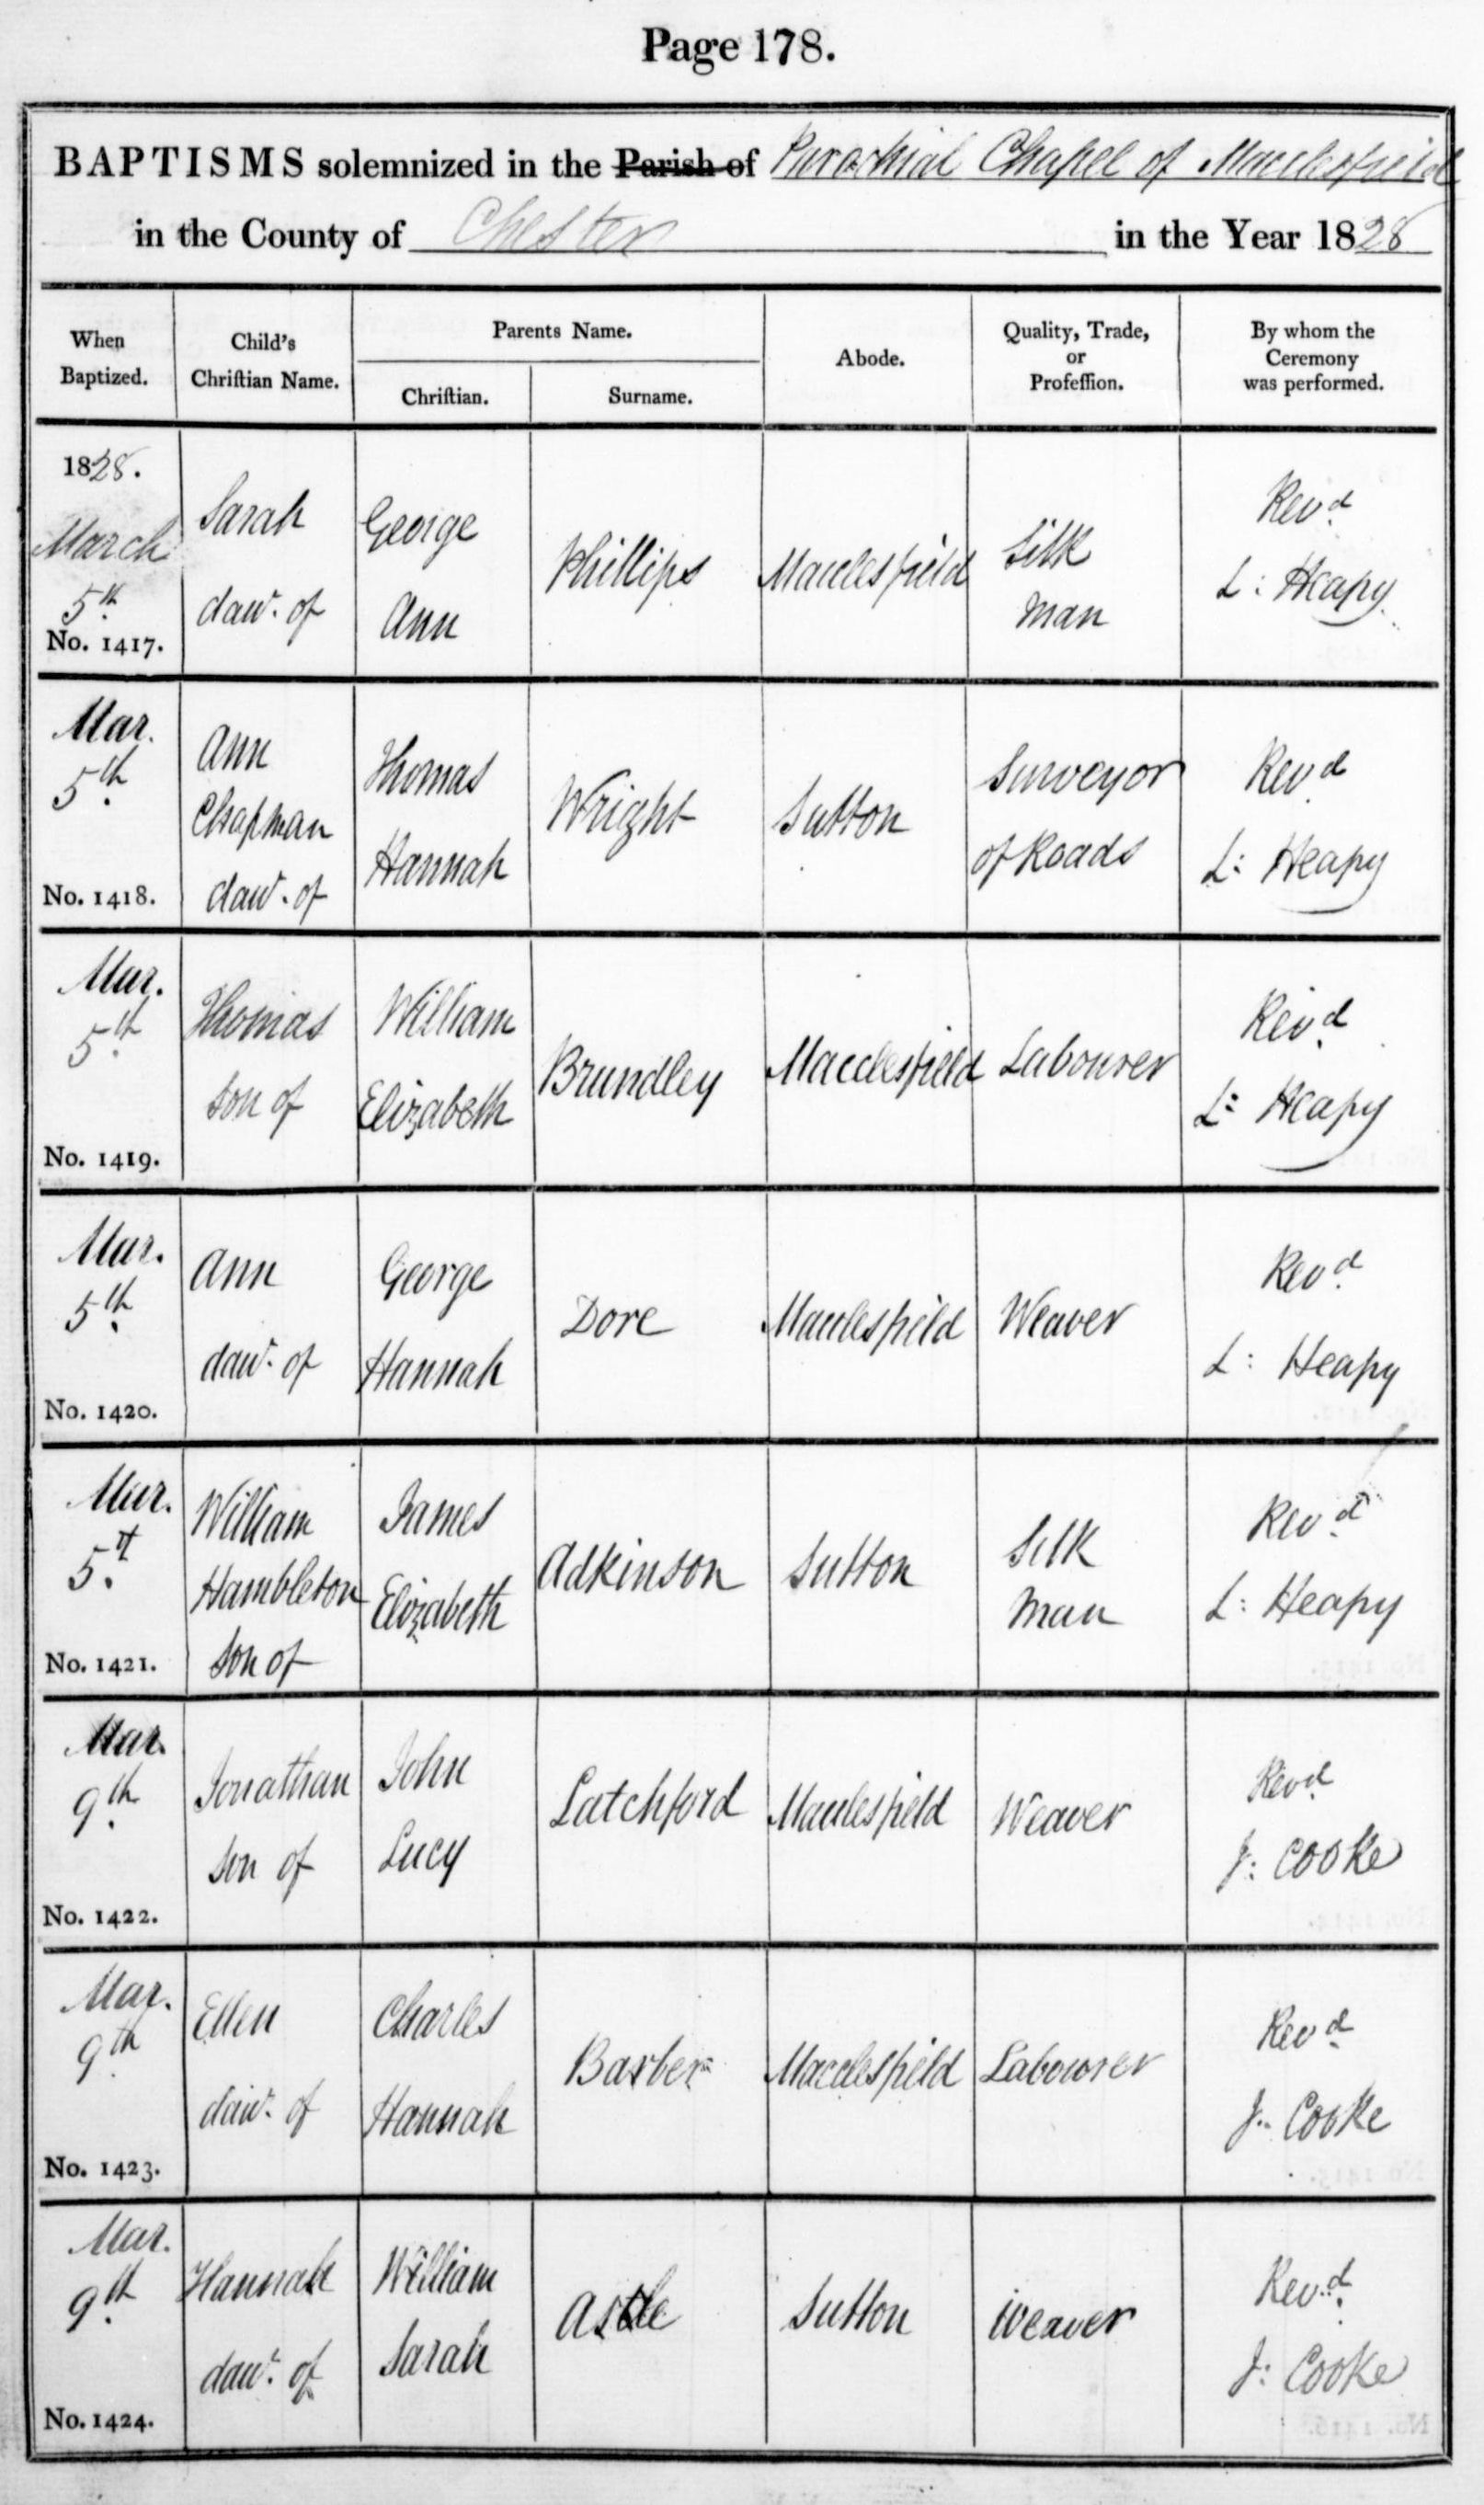 Page 178.
BAPTISMS solemnized in the Parish of Parochial Chapel of Macclesfield
in the County of Chester in the Year 1828
When Baptized.
Child's Christian Name.
Parents Name.
Christian.
Surname.
Abode.
Quality, Trade, or Profession.
By whom the Ceremony was performed.
1828.
March
5th
No. 1417.
Sarah
dawr. of
George
Ann
Phillips
Macclesfield
Silk
Man
Revd
L: Heapy
Mar.
5th
No. 1418.
Ann
Chapman
dawr. of
Thomas
Hannah
Wright
Sutton
Surveyor
of Roads
Revd
L: Heapy
Mar.
5th
No. 1419.
Thomas
son of
William
Elizabeth
Brundley
Macclesfield
Labourer
Revd
L: Heapy
Mar.
5th
No. 1420.
Ann
dawr. of
George
Hannah
Dore
Macclesfield
Weaver
Revd
L: Heapy
Mar.
5th
No. 1421.
William
Hambleton
son of
James
Elizabeth
Adkinson
Sutton
Silk
Man
Revd
L: Heapy
Mar.
9th
No. 1422.
Jonathan
son of
John
Lucy
Latchford
Macclesfield
Weaver
Revd
J: Cooke
Mar.
9th
No. 1423.
Ellen
dawr. of
Charles
Hannah
Barber
Macclesfield
Labourer
Revd
J: Cooke
Mar.
9th
No. 1424.
Hannah
dawr. of
William
Sarah
Astle
Sutton
Weaver
Revd
J: Cooke